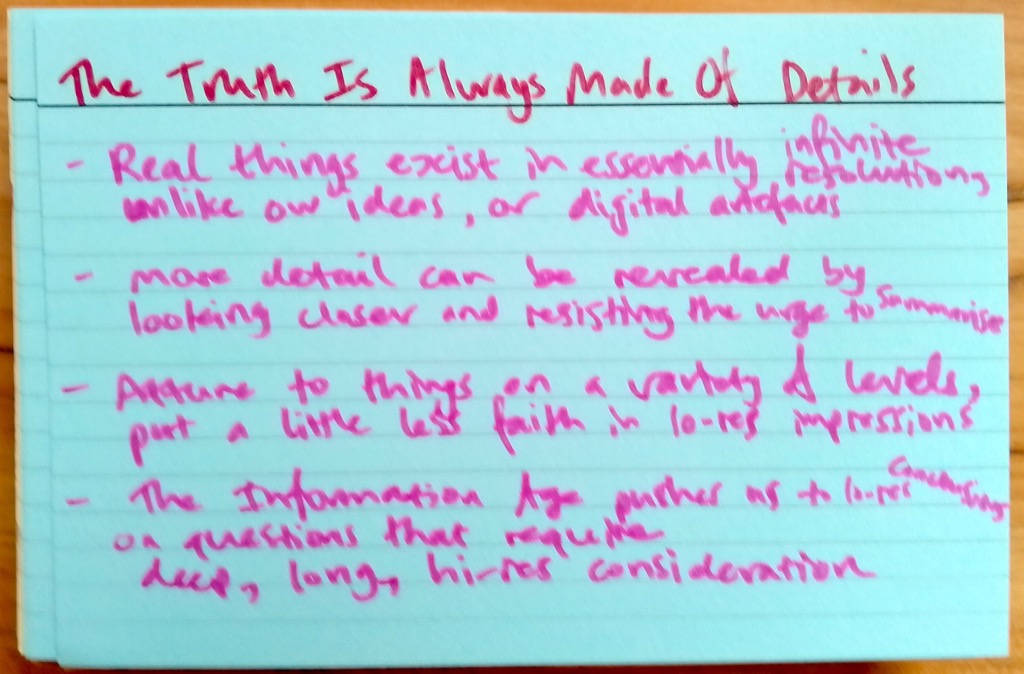 The Truth Is Always Made Of Details
- Real things exist in essentially infinite resolution,
unlike our ideas, or digital artefacts
- more detail can be revealed by
looking closer and resisting the urge to summarise
- Attune to things on a variety of levels,
put a little less faith in lo-res impressions
- The Information Age pushes us to lo-res conclusions
on questions that require
deep, long, hi-res consideration